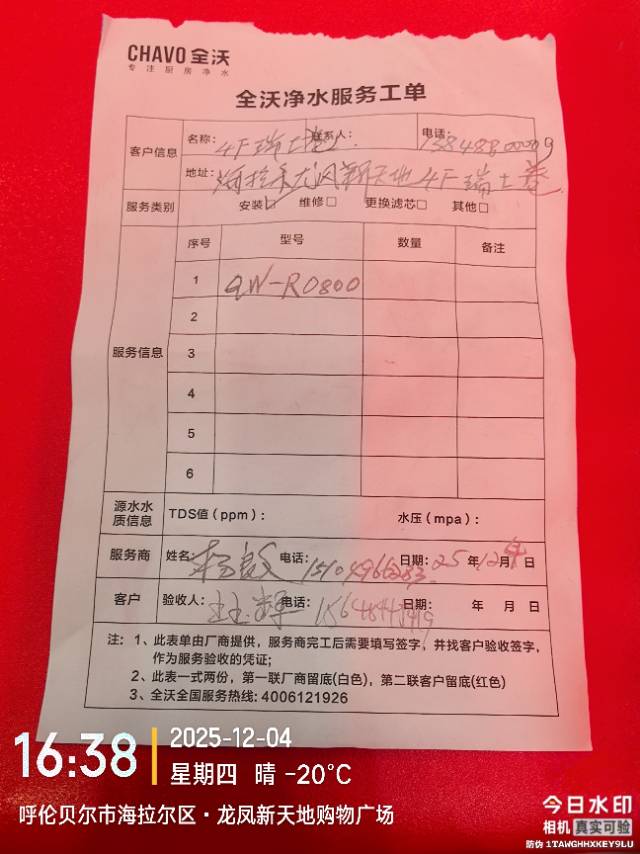 CHAVO 全沃
专注厨房净水
全沃净水服务工单
客户信息 名称：4F瑞士卷 联系人： 电话：13848800009
地址：海拉尔龙凤新天地4F瑞士卷
服务类别 安装☑ 维修□ 更换滤芯□ 其他□
服务信息
序号 型号 数量 备注
1 QW-RO800
2
3
4
5
6
源水水质信息 TDS值（ppm）： 水压（mpa）：
服务商 姓名： 电话：15104966283 日期：25年12月4日
客户 验收人： 电话： 日期： 年 月 日
注：1、此表单由厂商提供，服务商完工后需要填写签字，并找客户验收签字，
作为服务验收的凭证；
2、此表一式两份，第一联厂商留底(白色)，第二联客户留底(红色)
3、全沃全国服务热线: 4006121926
16:38
2025-12-04
星期四 晴 -20℃
呼伦贝尔市海拉尔区·龙凤新天地购物广场
今日水印
相机 真实可验
防伪 1TAWGHHXKEY9LU